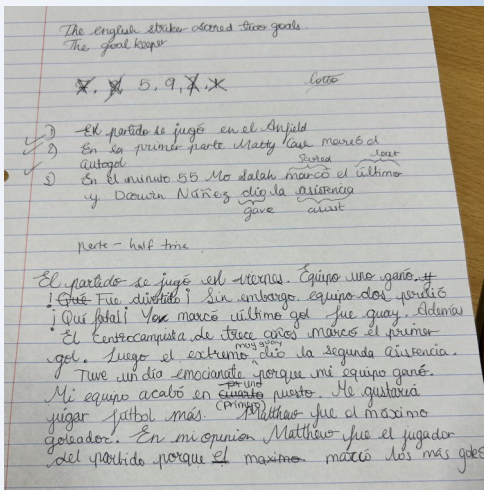 The english striker scored two goals
The goal keeper
5, 9,
Lotto
1) El partido se jugó en el Anfield
2) En la primer parte Matty Cash marcó el
autogol
scored last
3) En el minuto 55 Mo Salah marcó el último
y Darwin Núñez dio la asistencia
gave assist
parte - half time
El partido se jugó el viernes. Equipo uno ganó.
¡ Qué Fue divertido! Sin embargo, equipo dos perdió
¡Qué fatal! Yo marcó último gol fue guay. Además
El centrocampista de trece años marcó el primer
muy guay
gol. Luego el extremo, dió la segunda asistencia.
Tuve un día emocianate porque mi equipo ganó.
Mi equipo acabó en cuarto puesto. Me gustaria
(primer)
jugar futbol más. Matthew fue el máximo
goleador. En mi opinion Matthew fue el jugador
del partido porque el maximo marcó los más goles